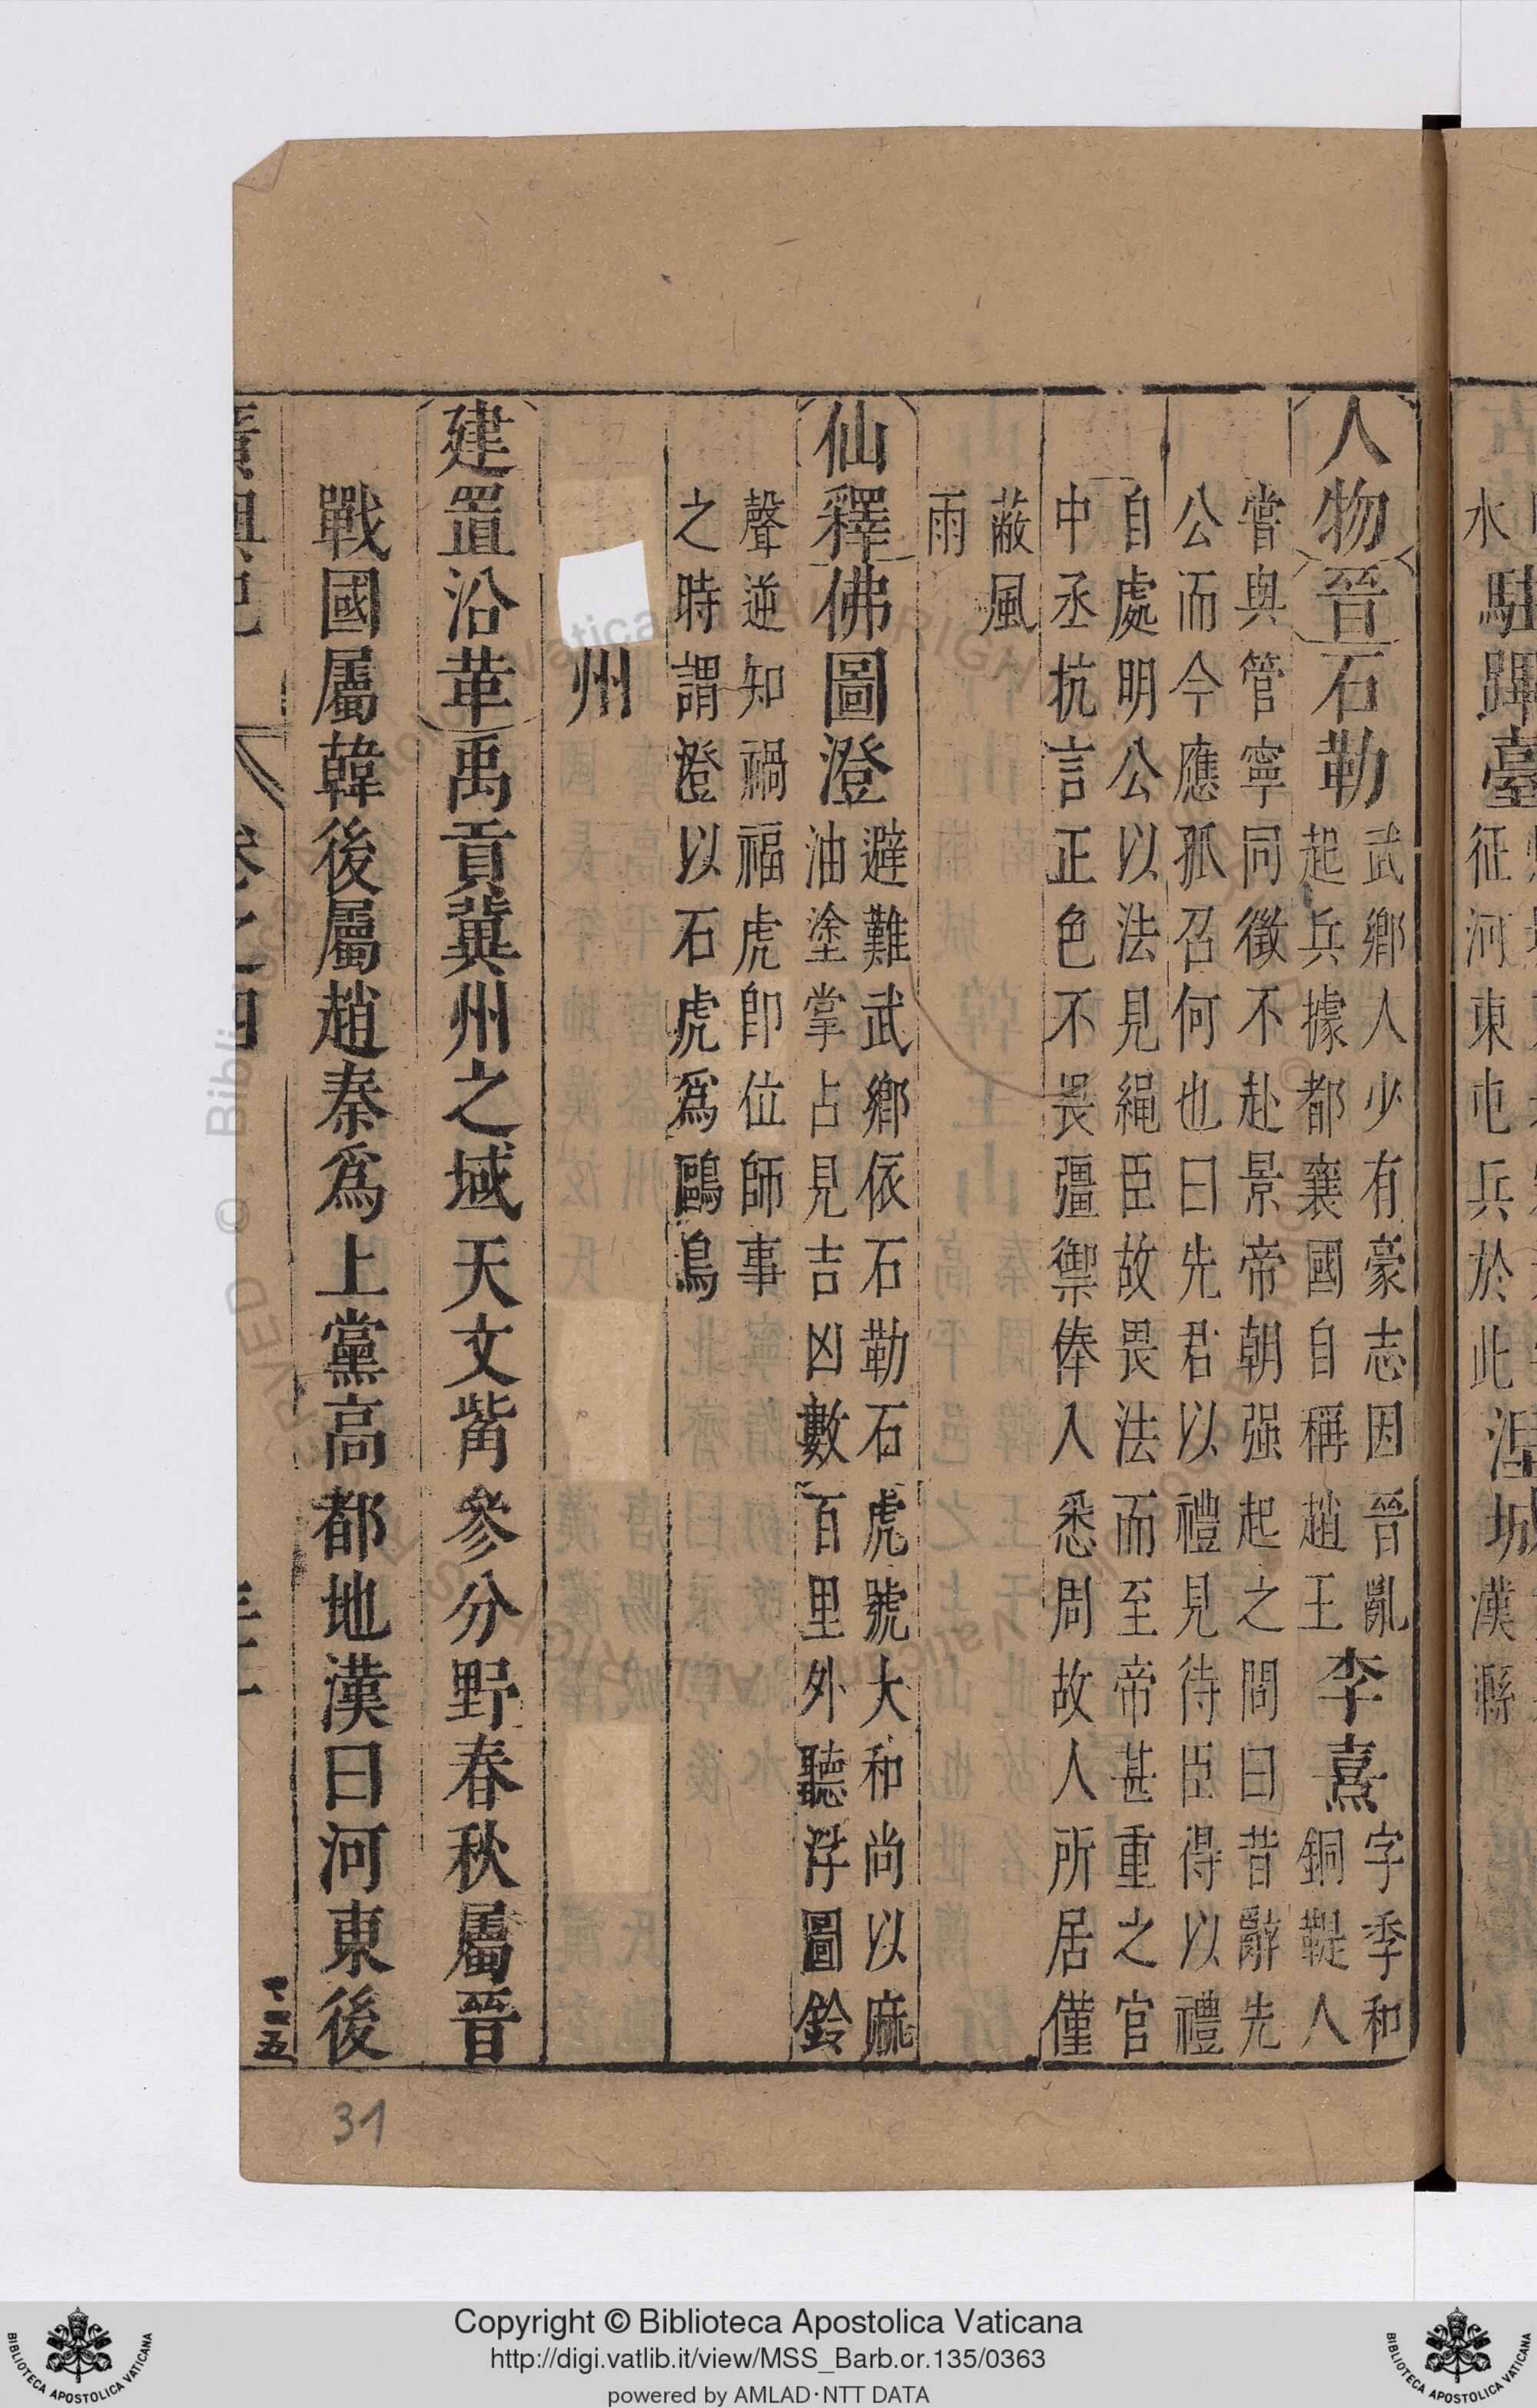 水駐蹕臺征河東屯兵於此涅城漢縣
人物晉石勒武鄉人少有豪志因晉亂起兵據都襄國自稱趙王李熹字季和銅鞮人
嘗與管寧同徵不赴景帝朝强起之問曰昔辭先
公而今應孤召何也曰先君以禮見待臣得以禮
自處明公以法見繩臣故畏法而至帝甚重之官
中丞抗言正色不畏彊禦俸入悉周故人所居僅
蔽風
雨
仙釋佛圖澄避難武鄉依石勒石虎號大和尚以麻油塗掌占見吉凶數百里外聽浮圖鈴
聲逆知禍福虎卽位師事
之時謂澄以石虎爲鷗鳥
州
建置沿革禹貢冀州之域天文觜參分野春秋屬晉
戰國屬韓後屬趙秦爲上黨高都地漢曰河東後
31
Copyright © Biblioteca Apostolica Vaticana
http://digi.vatlib.it/view/MSS_Barb.or.135/0363
powered by AMLAD·NTT DATA
BIBLIOTECA APOSTOLICA VATICANA
BIBLIOTECA APOSTOLICA VATICANA